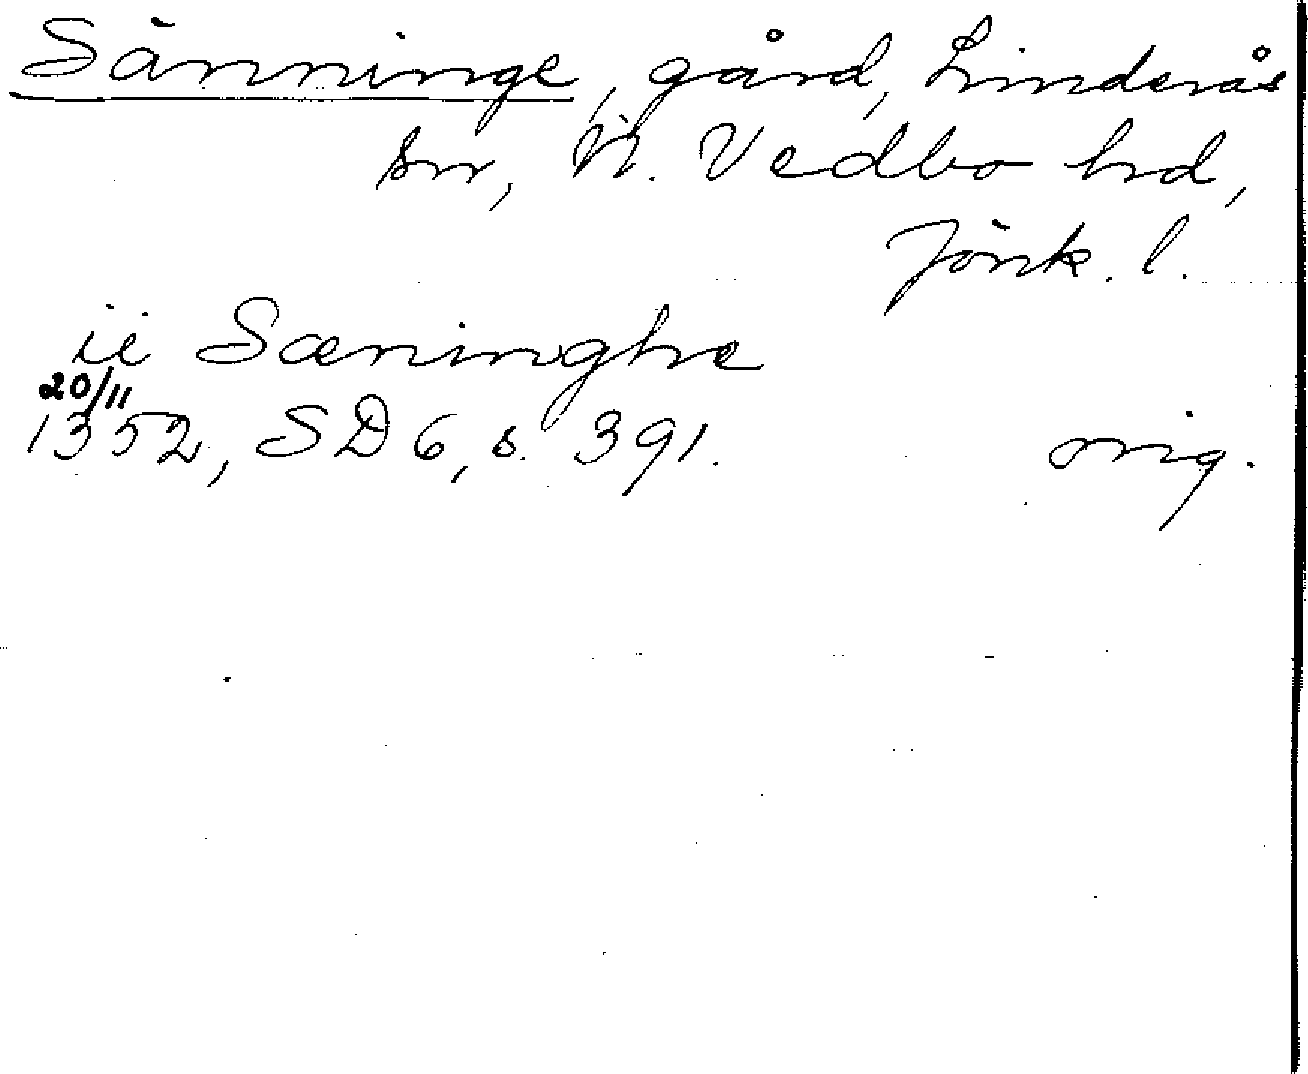 Sänninge, gård, Linderås
sn, N. Vedbo hd,
Jönk. l.
ii Sæninghe
20/11
1352, SD 6, s. 391. orig.